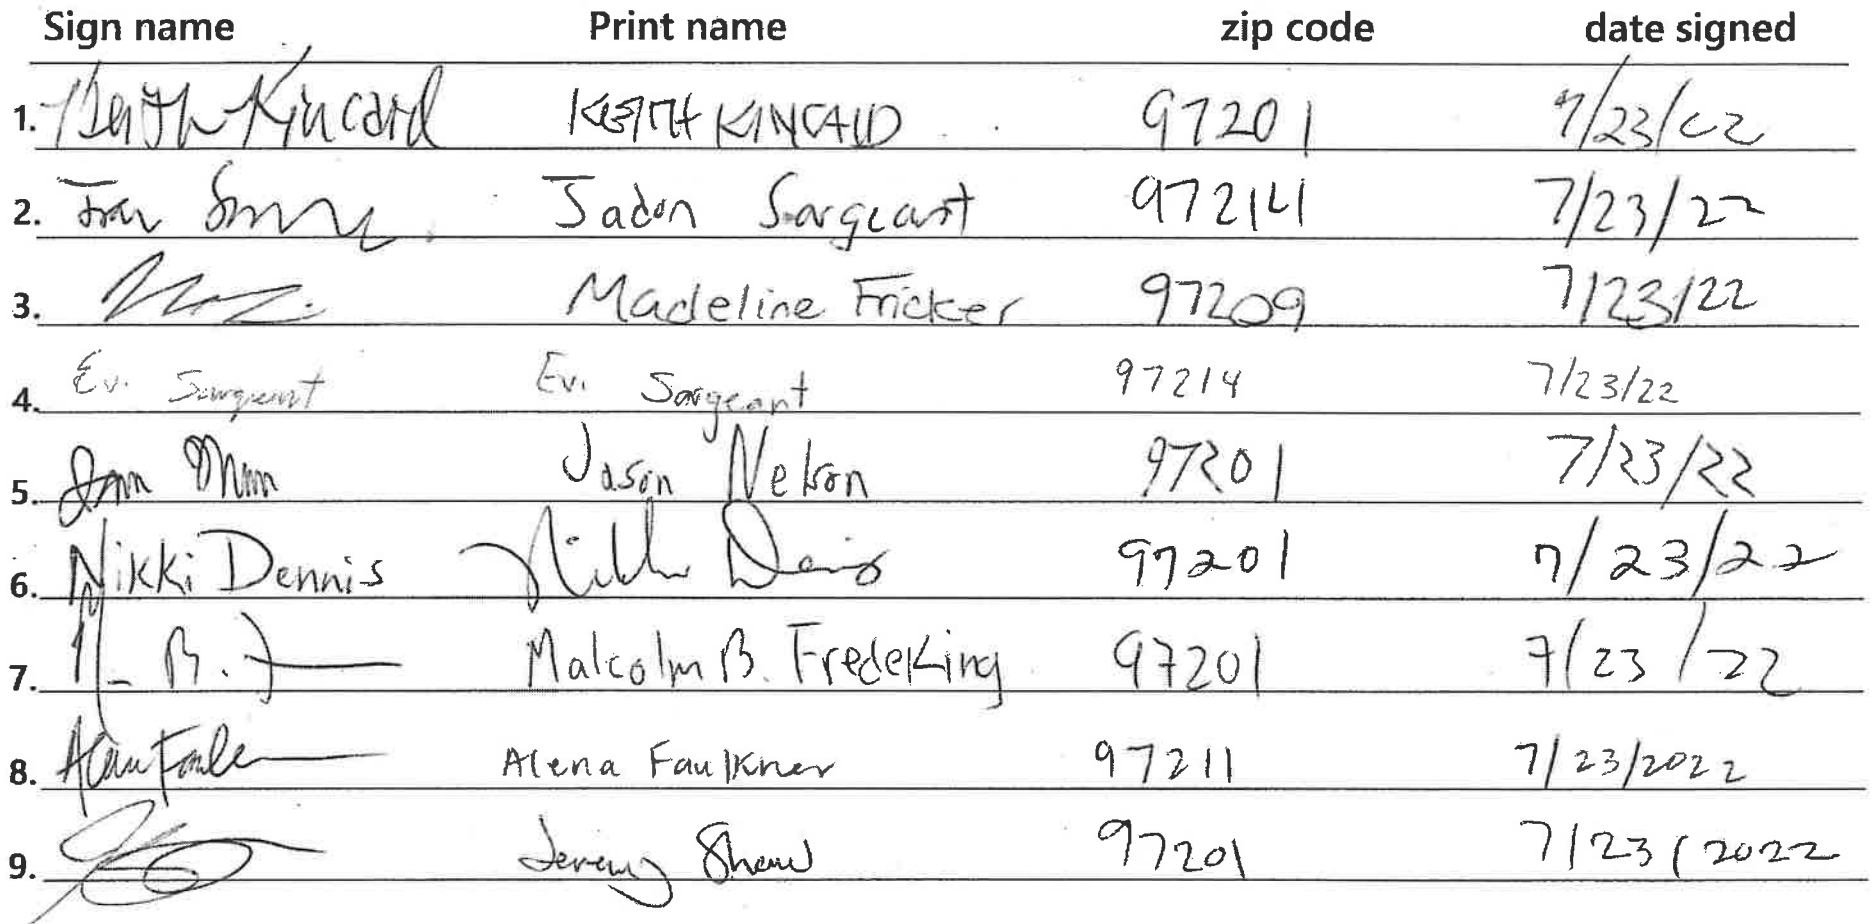 Sign name Print name zip code date signed
1. Keith Kincaid KEITH KINCAID 97201 7/23/22
2. Jadon Sargeant 97214 7/23/22
3. Madeline Fricker 97209 7/23/22
4. Ev. Sargeant Ev. Sargeant 97214 7/23/22
5. Jason Nelson 97201 7/23/22
6. Nikki Dennis 97201 7/23/22
7. M B. F Malcolm B. Fredeking 97201 7/23/22
8. Alena Faulkner 97211 7/23/2022
9. Jeremy Shaw 97201 7/23/2022